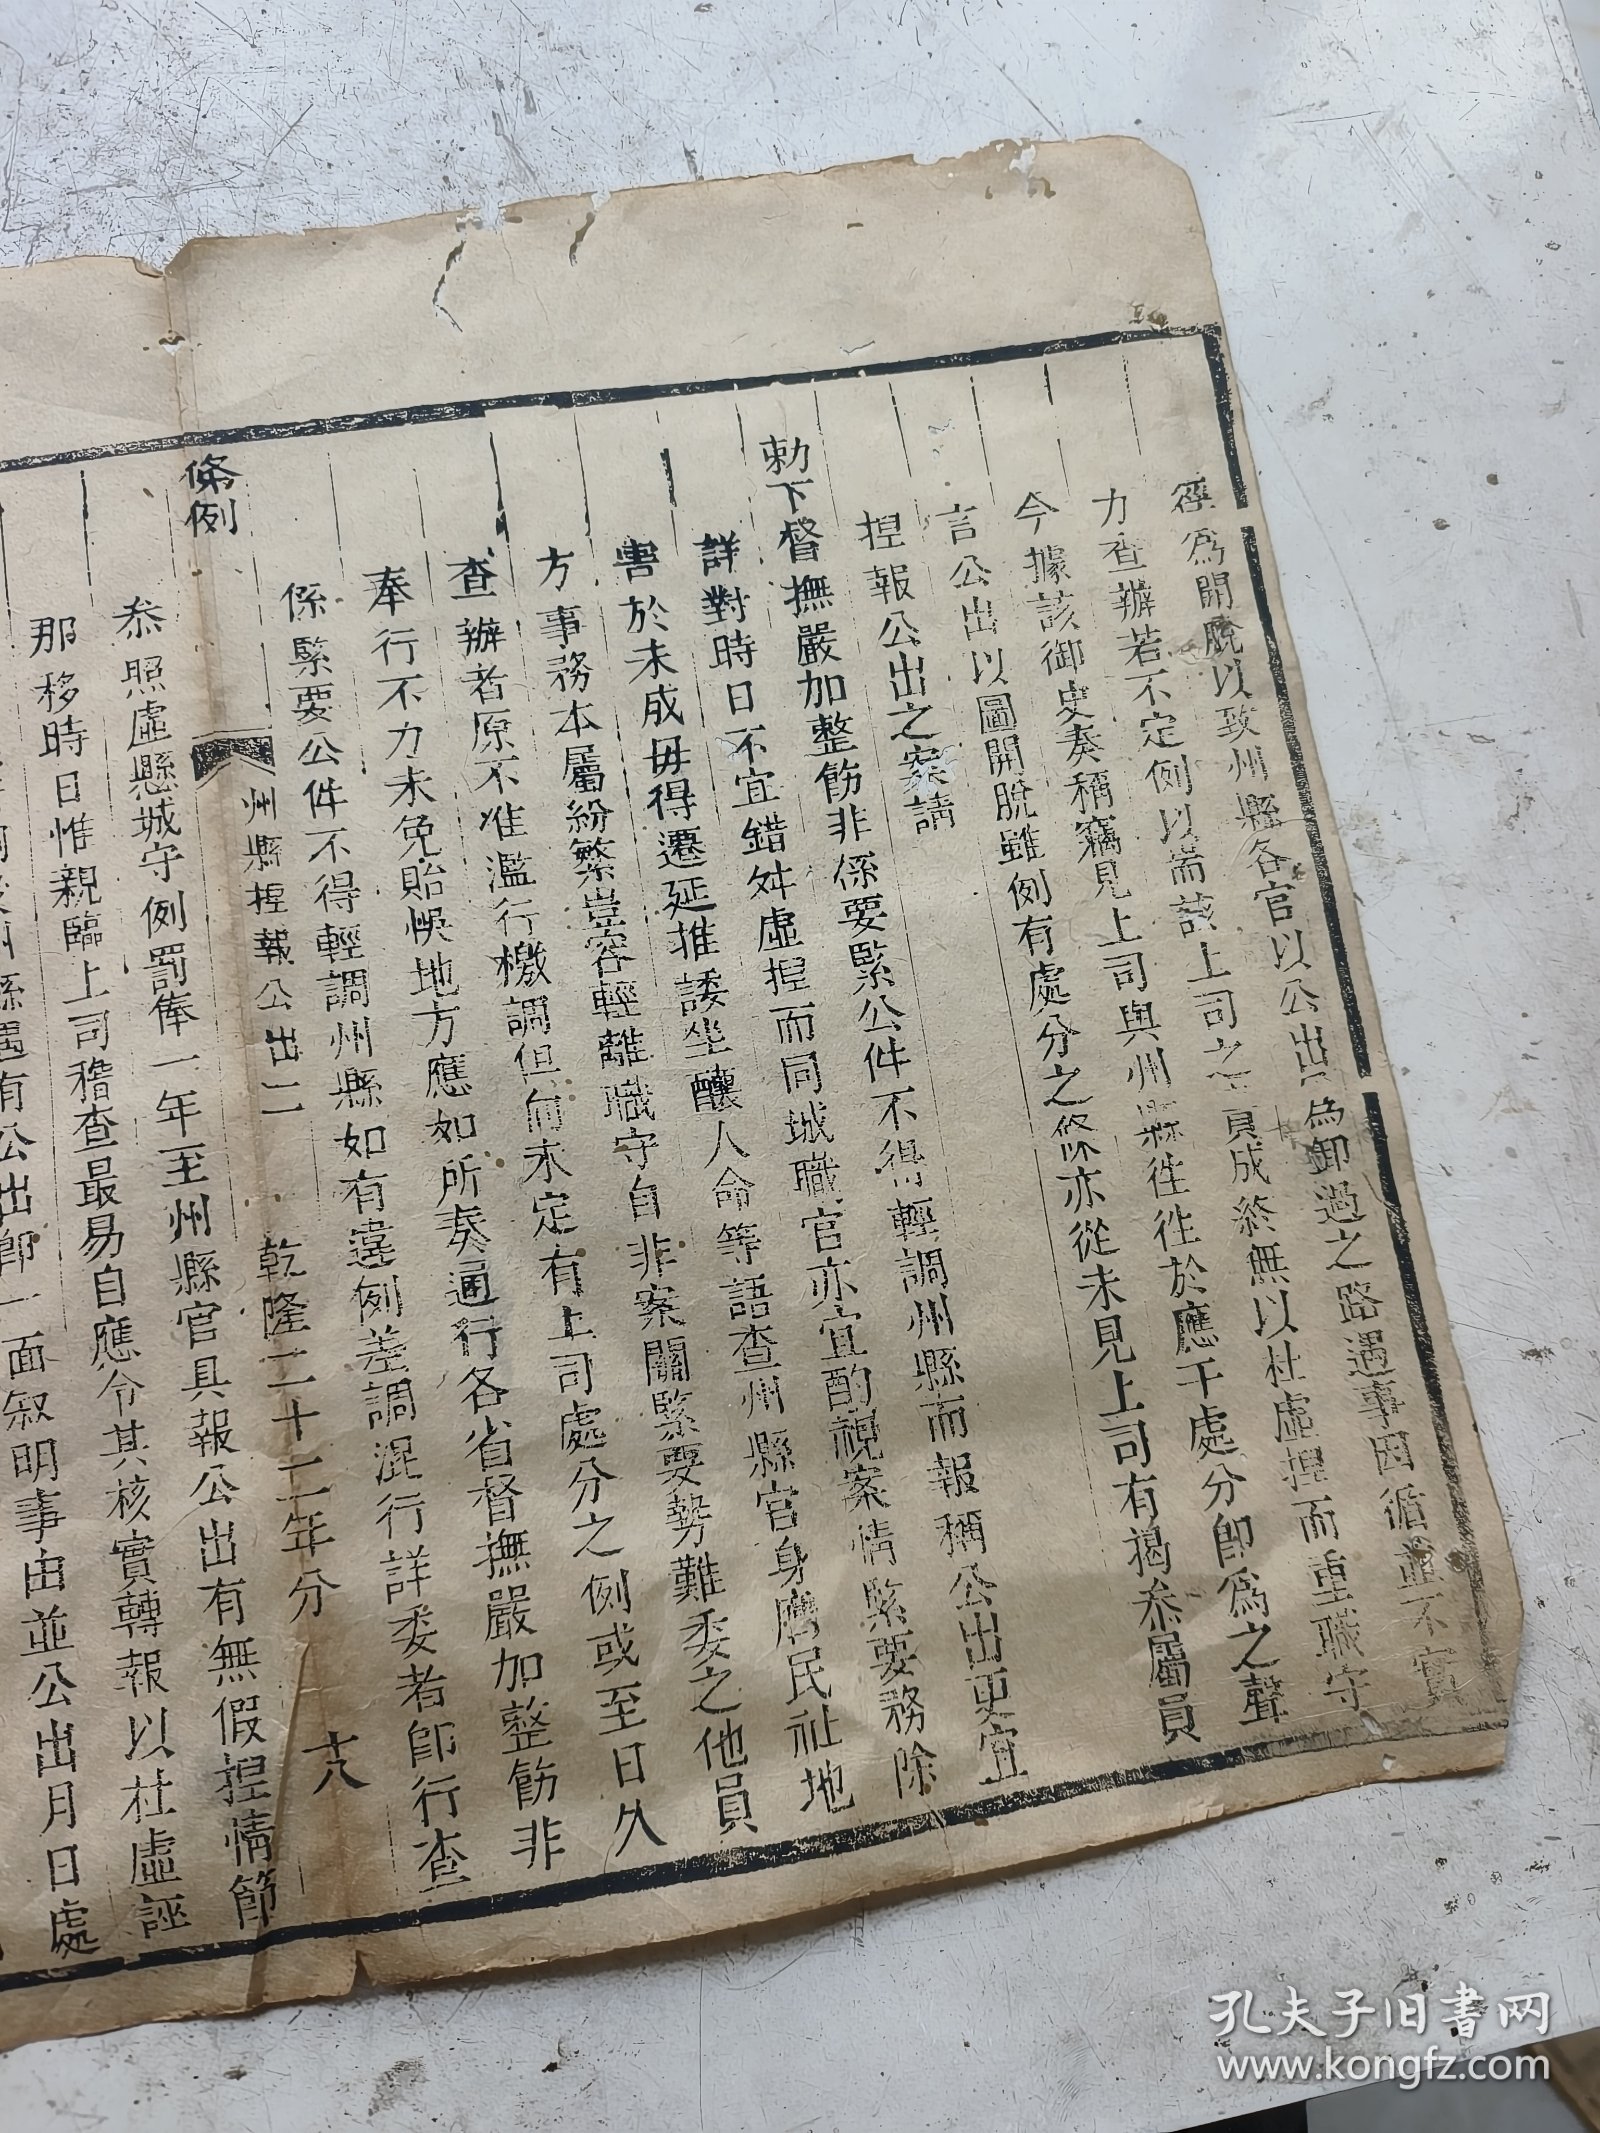 徑爲開脫以致州縣各官以公出爲卸過之路遇事因循並不實
力查辦若不定例以耑該上司之責成終無以杜虛捏而重職守
今據該御史奏稱竊見上司與州縣徃徃於應干處分卽爲之聲
言公出以圖開脫雖例有處分之條亦從未見上司有揭叅屬員
捏報公出之案請
勅下督撫嚴加整飭非係要緊公件不得輕調州縣而報稱公出更宜
詳對時日不宜錯舛虛捏而同城職官亦宜酌視案情緊要務除
害於未成毋得遷延推諉坐釀人命等語查州縣官身膺民社地
方事務本屬紛繁豈容輕離職守自非案關緊要勢難委之他員
查辦者原不准濫行檄調但向未定有上司處分之例或至日久
奉行不力未免貽悞地方應如所奏通行各省督撫嚴加整飭非
係緊要公件不得輕調州縣如有違例差調混行詳委者卽行查
條例 州縣捏報公出二 乾隆二十二年分 十八
叅照虛懸城守例罰俸一年至州縣官具報公出有無假捏情節
那移時日惟親臨上司稽查最易自應令其核實轉報以杜虛誣
州縣遇有公出卽一面叙明事由並公出月日處
孔夫子旧书网
www.kongfz.com